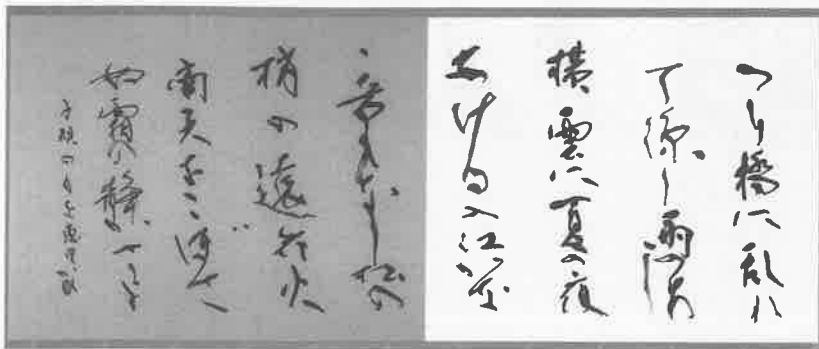 つり橋に乱れ
て涼し雨のあし
横雲に夏の夜
あける入江かな
音もなし松の
梢の遠花火
南天をこぼさ
ぬ霜の静かさよ
子規の句を